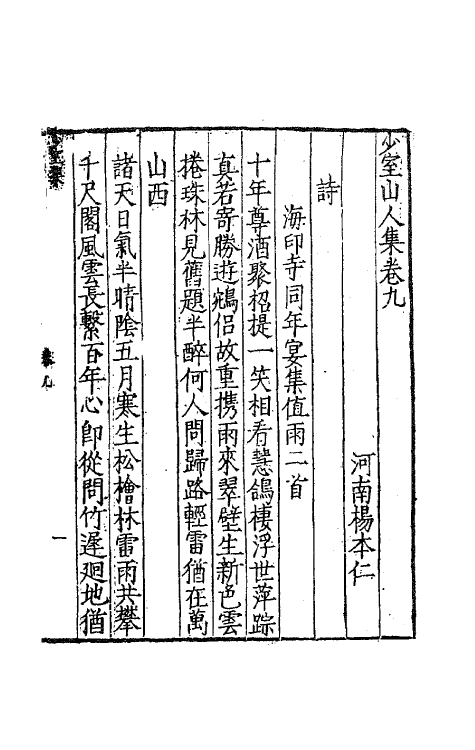 少室山人集卷九
河南楊本仁
詩
海印寺同年宴集值雨二首
十年尊酒聚招提一笑相看慧鴿棲浮世萍踪
真若寄勝遊鵷侶故重攜雨來翠壁生新色雲
捲珠林見舊題半醉何人問歸路輕雷猶在萬
山西
諸天日氣半晴陰五月寒生松檜林雷雨共攀
千尺閣風雲長繫百年心卽從問竹遲廻地猶
卷九
一